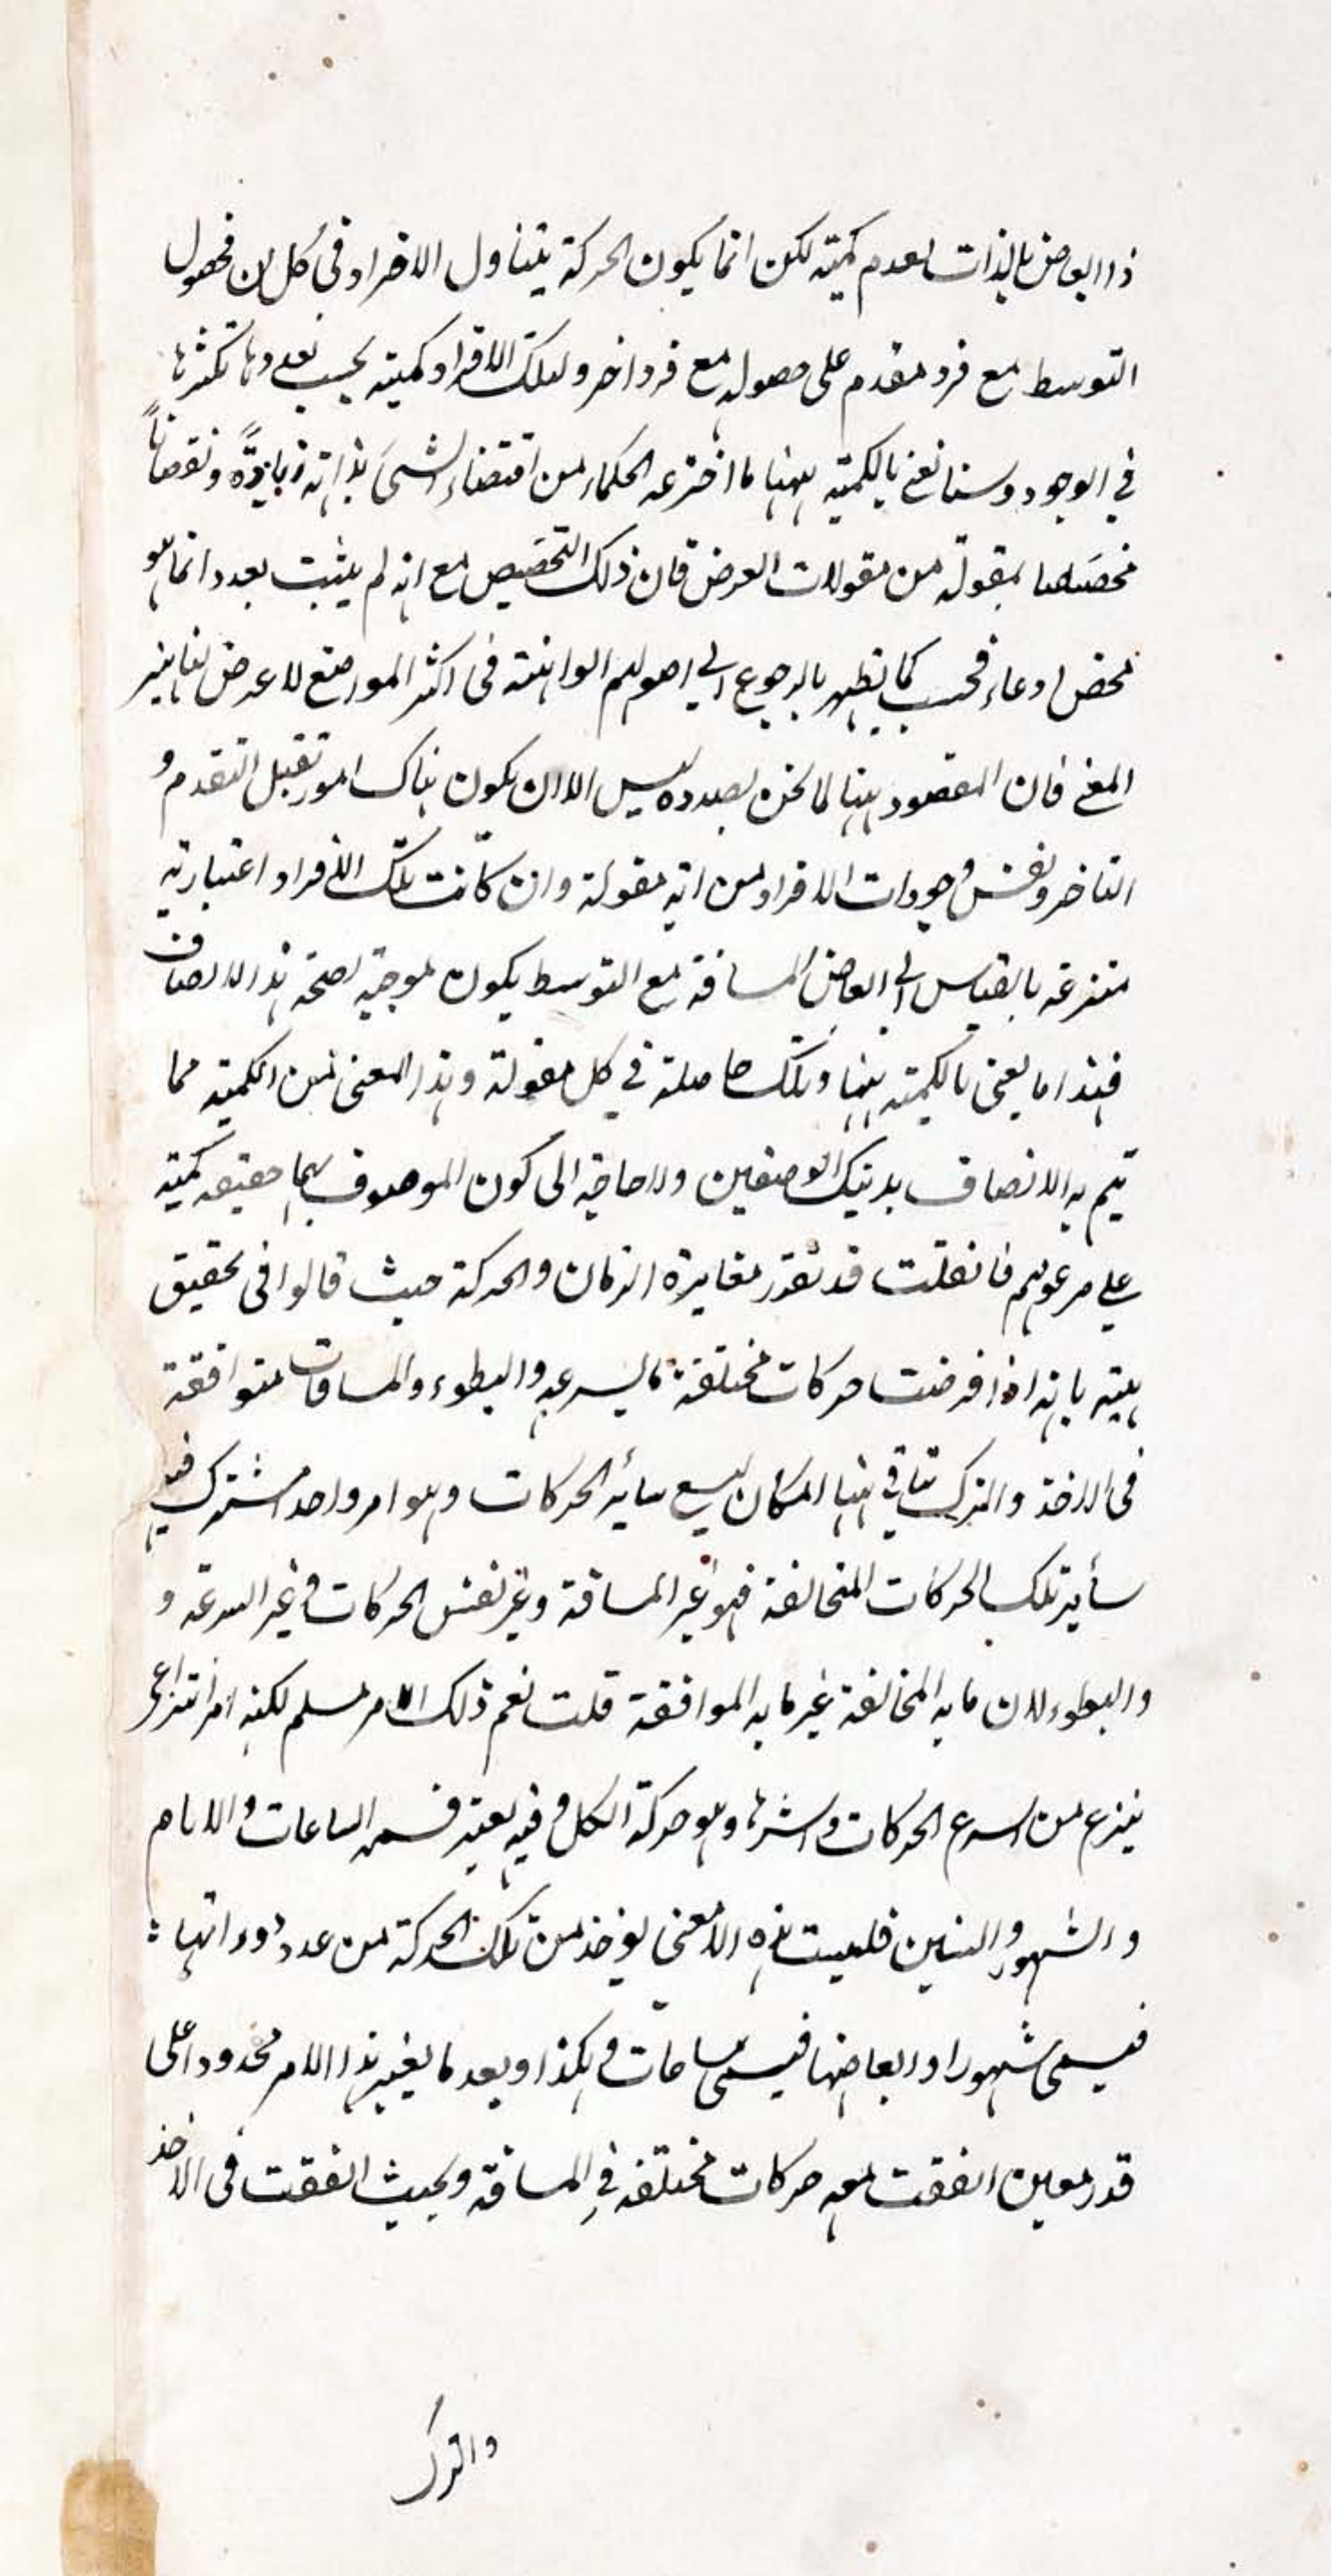 ذا ابعاض بالذات لعدم كميته لكن انما يكون الحركة يتناول الافراد في كل ان فحصول
التوسط مع فرد مقدم على حصوله مع فرد اخر ولتلك الافراد كمية بحسب تعددها تكثرها
في الوجود ولسنا نعني بالكمية ههنا ما اخترعه الحكماء من اقتضاء الشئ بذاته زيادةً ونقصاناً
مخصصا بمقولة من مقولات العرض فان ذلك التخصيص مع انه لم يثبت بعد انما هو
محض ادعاء فحسب كما يظهر بالرجوع الى اصولهم الواهنة في اكثر المواضع للاعراض بهذا
المعنى فان المقصود ههنا لما نحن بصدده ليس الا ان يكون هناك امور تقبل التقدم و
التاخر ونفس وجودات الافراد من اية مقولة وان كانت تلك الافراد اعتبارية
منتزعة بالقياس الى ابعاض المسافة مع التوسط يكون موجبة لصحة هذا الاتصاف
فهذا ما يعنى بالكمية ههنا وتلك حاصلة في كل مقولة وهذا المعنى من الكمية مما
يتم به الاتصاف بذينك الوصفين ولا حاجة الى كون الموصوف بهما حقيقة كمية
على مزعومهم فان قلت قد تقرر مغايرة الزمان والحركة حيث قالوا في تحقيق
هيته بانه اذا فرضت حركات مختلفة بالسرعة والبطوء والمسافات متوافقة
في الاخذ والترك يتاتى هنا امكان يسع سائر الحركات وهو امر واحد مشترك فيه
سائر تلك الحركات المتخالفة فهو غير المسافة وغير نفس الحركات وغير السرعة و
والبطوء لان ما به المخالفة غير ما به الموافقة قلت نعم ذلك الامر مسلم لكنه امر انتزاعي
ينتزع من اسرع الحركات واشرفها وهو حركة الكل وفيه يعتبر قسمة الساعات والايام
والشهور والسنين فليست هذه الا معنى يوخذ من تلك الحركة من عدد دوراتها
فيسمى شهورا او ابعاضها فيسمى ساعات وهكذا وبعد ما يغير هذا الامر محدودا على
قدر معين اتفقت معه حركات مختلفة في المسافة وبحيث اتفقت في الاخذ
والترك